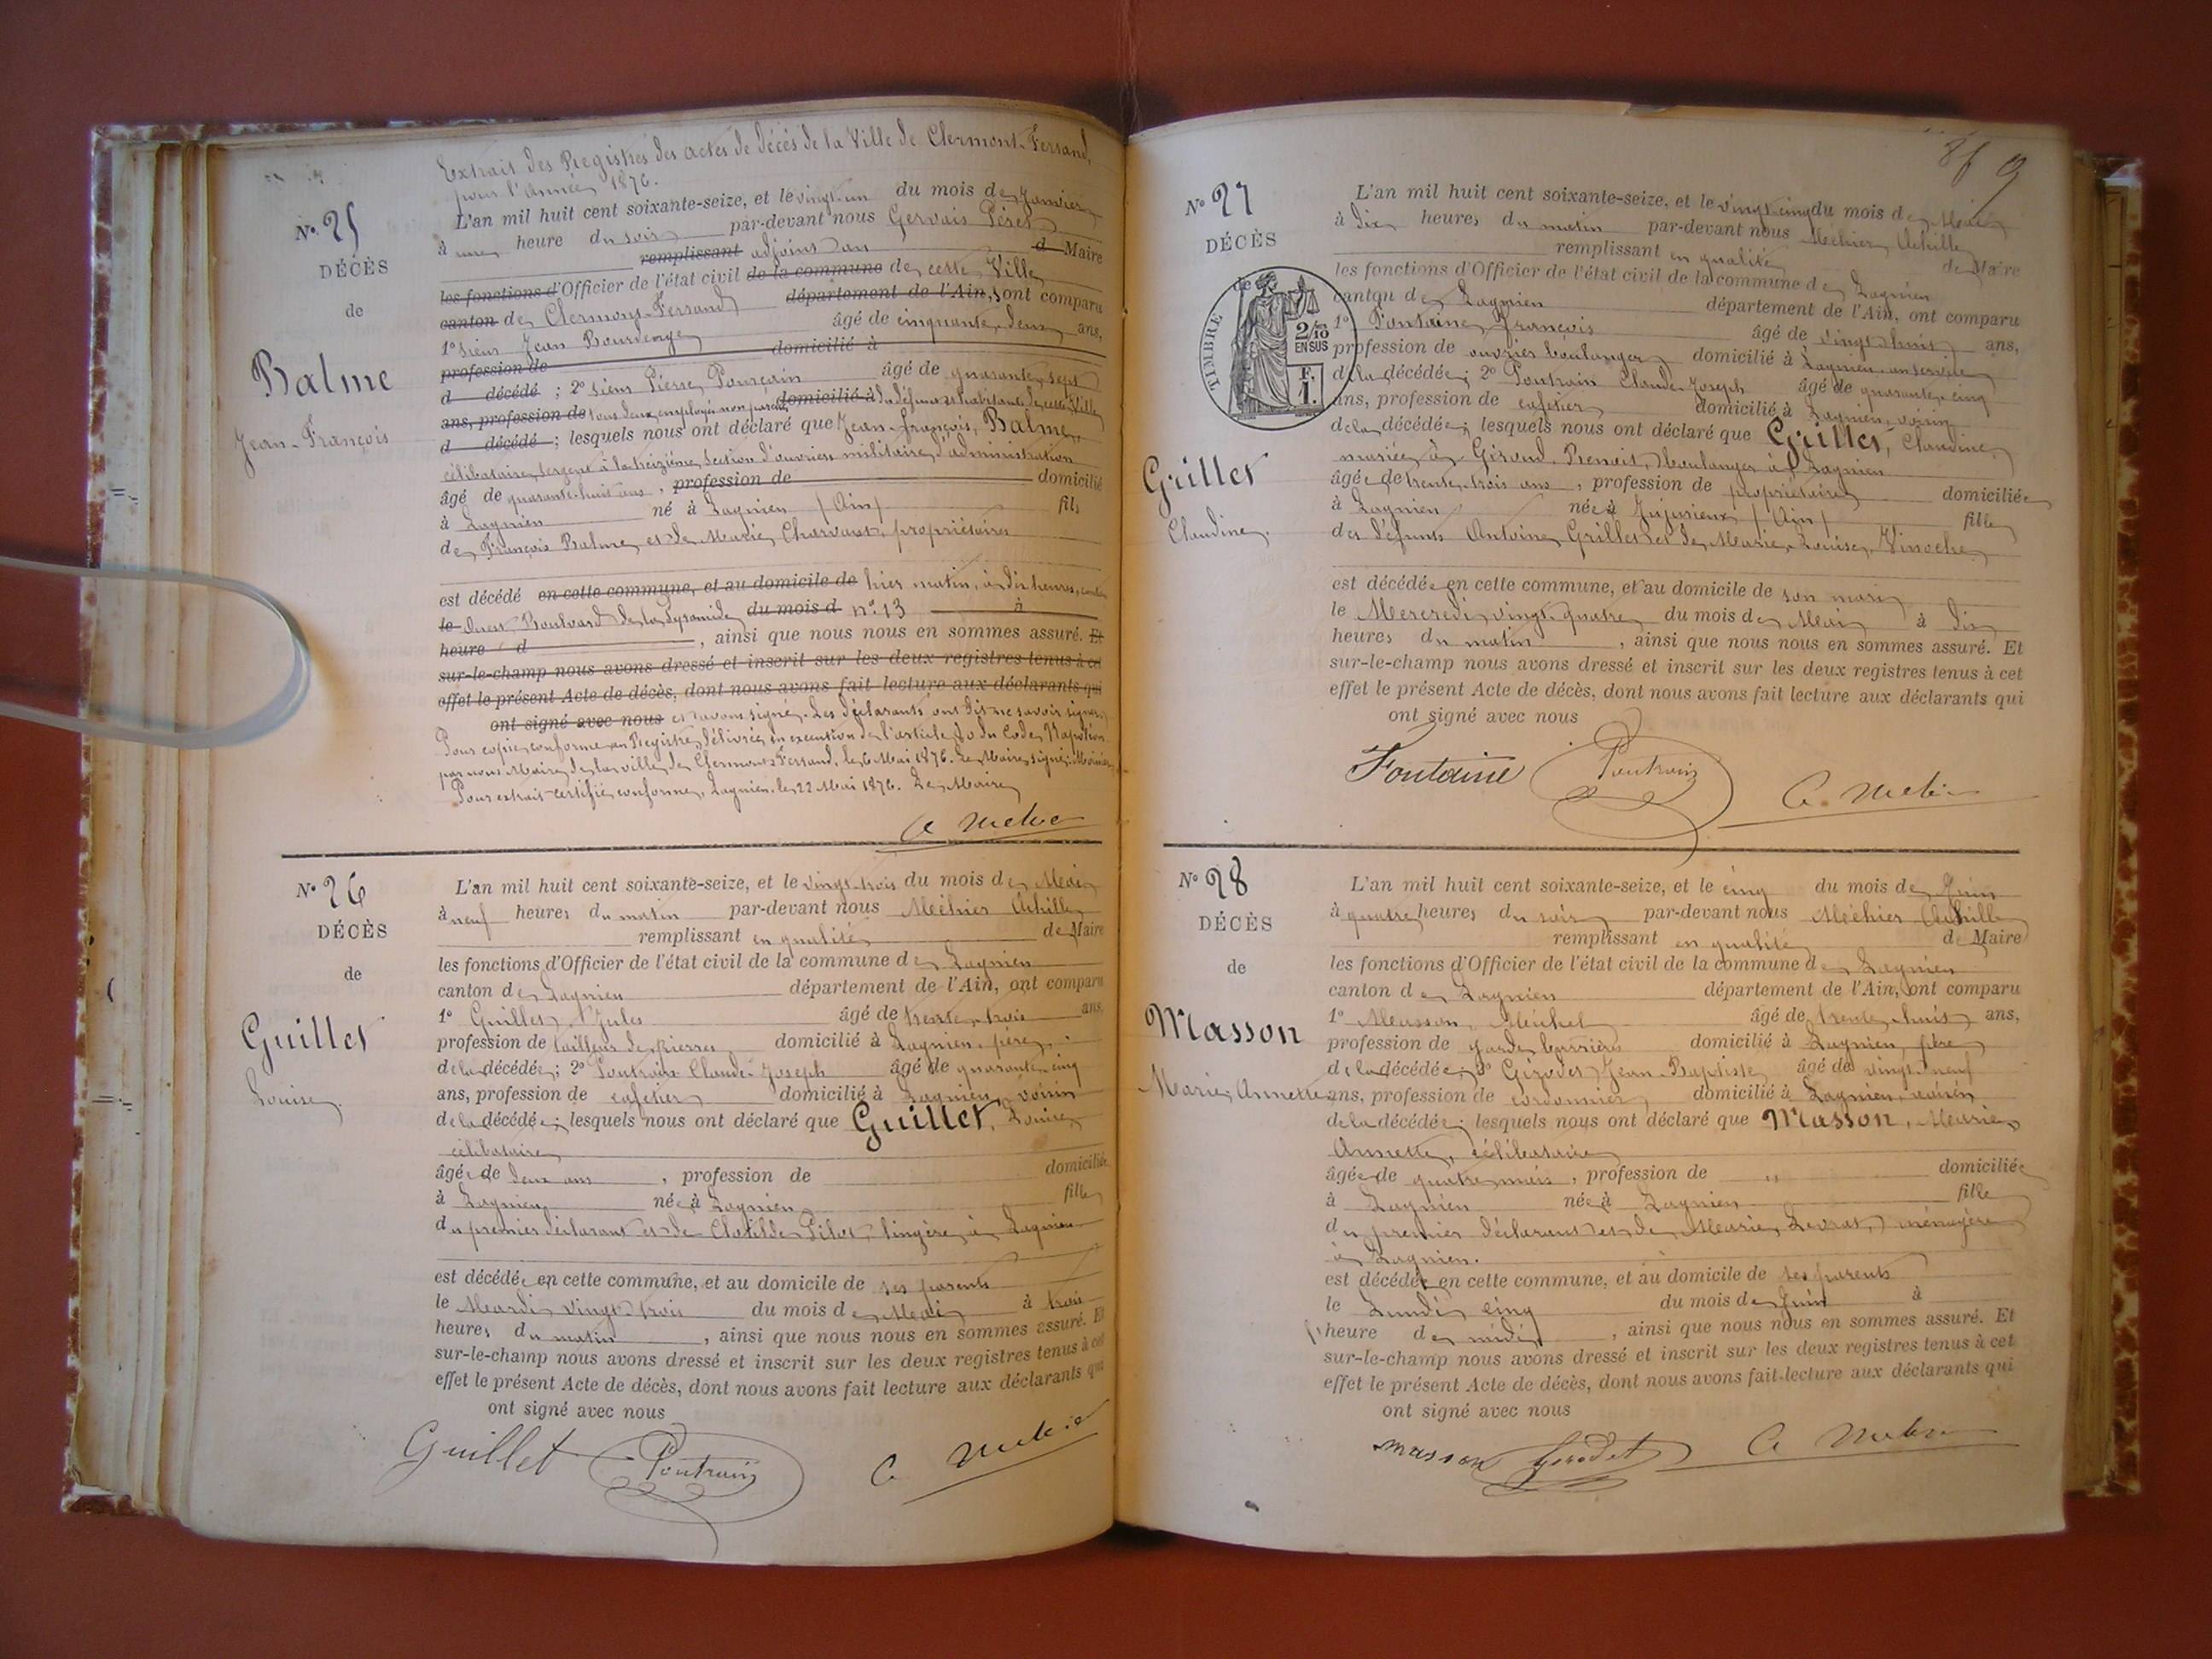 Extrait des Registres des actes de décès de la Ville de Clermont-Ferrand,
pour l'année 1876.
N° 25
DÉCÈS
de
Balme
Jean-François
L'an mil huit cent soixante-seize, et le vingt-un du mois de Janvier
à une heure du soir par-devant nous Gervais Péret
remplissant adjoint au d Maire
les fonctions d'Officier de l'état civil de la commune de cette Ville
canton de Clermont-Ferrand département de l'Ain, sont comparu
1° sieur Jean Bourdenge âgé de cinquante-deux ans,
profession de domicilié à
d décédé ; 2° sieur Pierre Pourçain âgé de quarante-sept
ans, profession de tous deux employés non parents domicilié à du défunt et habitants de cette Ville
d décédé ; lesquels nous ont déclaré que Jean-François, Balme,
célibataire, sergent à la treizième section d'ouvriers militaires d'administration
âgé de quarante-huit ans, profession de domicilié
à Lagnieu né à Lagnieu (Ain) fils
de François Balme et de Marie Charvaut, propriétaires
est décédé en cette commune, et au domicile de hier matin, à dix heures,
le Boulevard de la Pyramide du mois d n° 13 à
heure d , ainsi que nous nous en sommes assuré. Et
sur-le-champ nous avons dressé et inscrit sur les deux registres tenus à cet
effet le présent Acte de décès, dont nous avons fait lecture aux déclarants qui
ont signé avec nous et avons signé. Les déclarants ont dit ne savoir signer.
Pour copie conforme au Registre, délivrée en exécution de l'article 80 du Code Napoléon
par nous Maire de la ville de Clermont-Ferrand, le 6 Mai 1876. Le Maire signé:
Pour extrait certifié conforme, Lagnieu, le 22 Mai 1876. Le Maire
N° 26
DÉCÈS
de
Guillet
Louise
L'an mil huit cent soixante-seize, et le vingt-trois du mois de Mai
à neuf heures du matin par-devant nous Méhier Achille
remplissant en qualité de Maire
les fonctions d'Officier de l'état civil de la commune de Lagnieu
canton de Lagnieu département de l'Ain, ont comparu
1° Guillet, Jules âgé de trente-trois ans,
profession de tailleur de pierres domicilié à Lagnieu, père
de la décédée; 2° Poutrain Claude-Joseph âgé de quarante-cinq
ans, profession de cafetier domicilié à Lagnieu, voisin
de la décédée; lesquels nous ont déclaré que Guillet, Louise,
célibataire
âgée de deux ans, profession de domiciliée
à Lagnieu née à Lagnieu fille
du premier déclarant et de Clotilde Pilot, lingère, à Lagnieu
est décédée en cette commune, et au domicile de ses parents
le Mardi vingt-trois du mois de Mai à trois
heures du matin, ainsi que nous nous en sommes assuré. Et
sur-le-champ nous avons dressé et inscrit sur les deux registres tenus à cet
effet le présent Acte de décès, dont nous avons fait lecture aux déclarants qui
ont signé avec nous
Guillet Poutrain
9
N° 27
DÉCÈS
de
TIMBRE
2/10
EN SUS
F.
1.
Grillet
Claudine
L'an mil huit cent soixante-seize, et le vingt-cinq du mois de Mai
à dix heures du matin par-devant nous Méhier Achille
remplissant en qualité de Maire
les fonctions d'Officier de l'état civil de la commune de Lagnieu
canton de Lagnieu département de l'Ain, ont comparu
1° Fontaine François âgé de vingt-huit ans,
profession de ouvrier boulanger domicilié à Lagnieu, au service
de la décédée; 2° Poutrain Claude-Joseph âgé de quarante-cinq
ans, profession de cafetier domicilié à Lagnieu, voisin
de la décédée; lesquels nous ont déclaré que Grillet, Claudine,
mariée à Giroud, Benoit, boulanger à Lagnieu
âgée de trente-trois ans, profession de propriétaire domiciliée
à Lagnieu née à Jujurieux (Ain) fille
des défunts Antoine Grillet et de Marie Louise, Vinoche
est décédée en cette commune, et au domicile de son mari
le Mercredi vingt-quatre du mois de Mai à dix
heures du matin, ainsi que nous nous en sommes assuré. Et
sur-le-champ nous avons dressé et inscrit sur les deux registres tenus à cet
effet le présent Acte de décès, dont nous avons fait lecture aux déclarants qui
ont signé avec nous
Fontaine Poutrain
N° 28
DÉCÈS
de
Masson
Marie, Annette
L'an mil huit cent soixante-seize, et le cinq du mois de Juin
à quatre heures du soir par-devant nous Méhier Achille
remplissant en qualité de Maire
les fonctions d'Officier de l'état civil de la commune de Lagnieu
canton de Lagnieu département de l'Ain, ont comparu
1° Masson, Michel âgé de trente-huit ans,
profession de garde barrière domicilié à Lagnieu, père
de la décédée; 2° Girodet Jean-Baptiste âgé de vingt-neuf
ans, profession de cordonnier domicilié à Lagnieu, voisin
de la décédée; lesquels nous ont déclaré que Masson, Marie,
Annette, célibataire
âgée de quatre mois, profession de " domiciliée
à Lagnieu née à Lagnieu fille
du premier déclarant et de Marie Levrat, ménagère
à Lagnieu.
est décédée en cette commune, et au domicile de ses parents
le Lundi cinq du mois de Juin à
heure de midi, ainsi que nous nous en sommes assuré. Et
sur-le-champ nous avons dressé et inscrit sur les deux registres tenus à cet
effet le présent Acte de décès, dont nous avons fait lecture aux déclarants qui
ont signé avec nous
masson Girodet